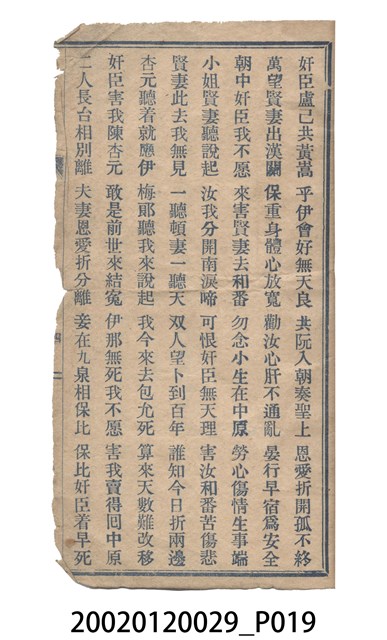 奸臣盧己共黃嵩 乎伊會好無天良 共阮入朝奏聖上 恩愛折開孤不終
萬望賢妻出漢關 保重身體心放寬 勸汝心肝不通亂 晏行早宿爲安全
朝中奸臣我不愿 來害賢妻去和番 勿念小生在中原 勞心傷情生事端
小姐賢妻聽說起 汝我分開南淚啼 可恨奸臣無天理 害汝和番苦傷悲
賢妻此去我無見 一聽頓妻一聽天 双人望卜到百年 誰知今日折兩邊
杏元聽着就應伊 梅郎聽我來說起 我今來去包允死 算來天數難改移
奸臣害我陳杏元 敢是前世來結冤 伊那無死我不愿 害我賣得囘中原
二人長台相別離 夫妻恩愛折分離 妾在九泉相保比 保比奸臣着早死
20020120029_P019